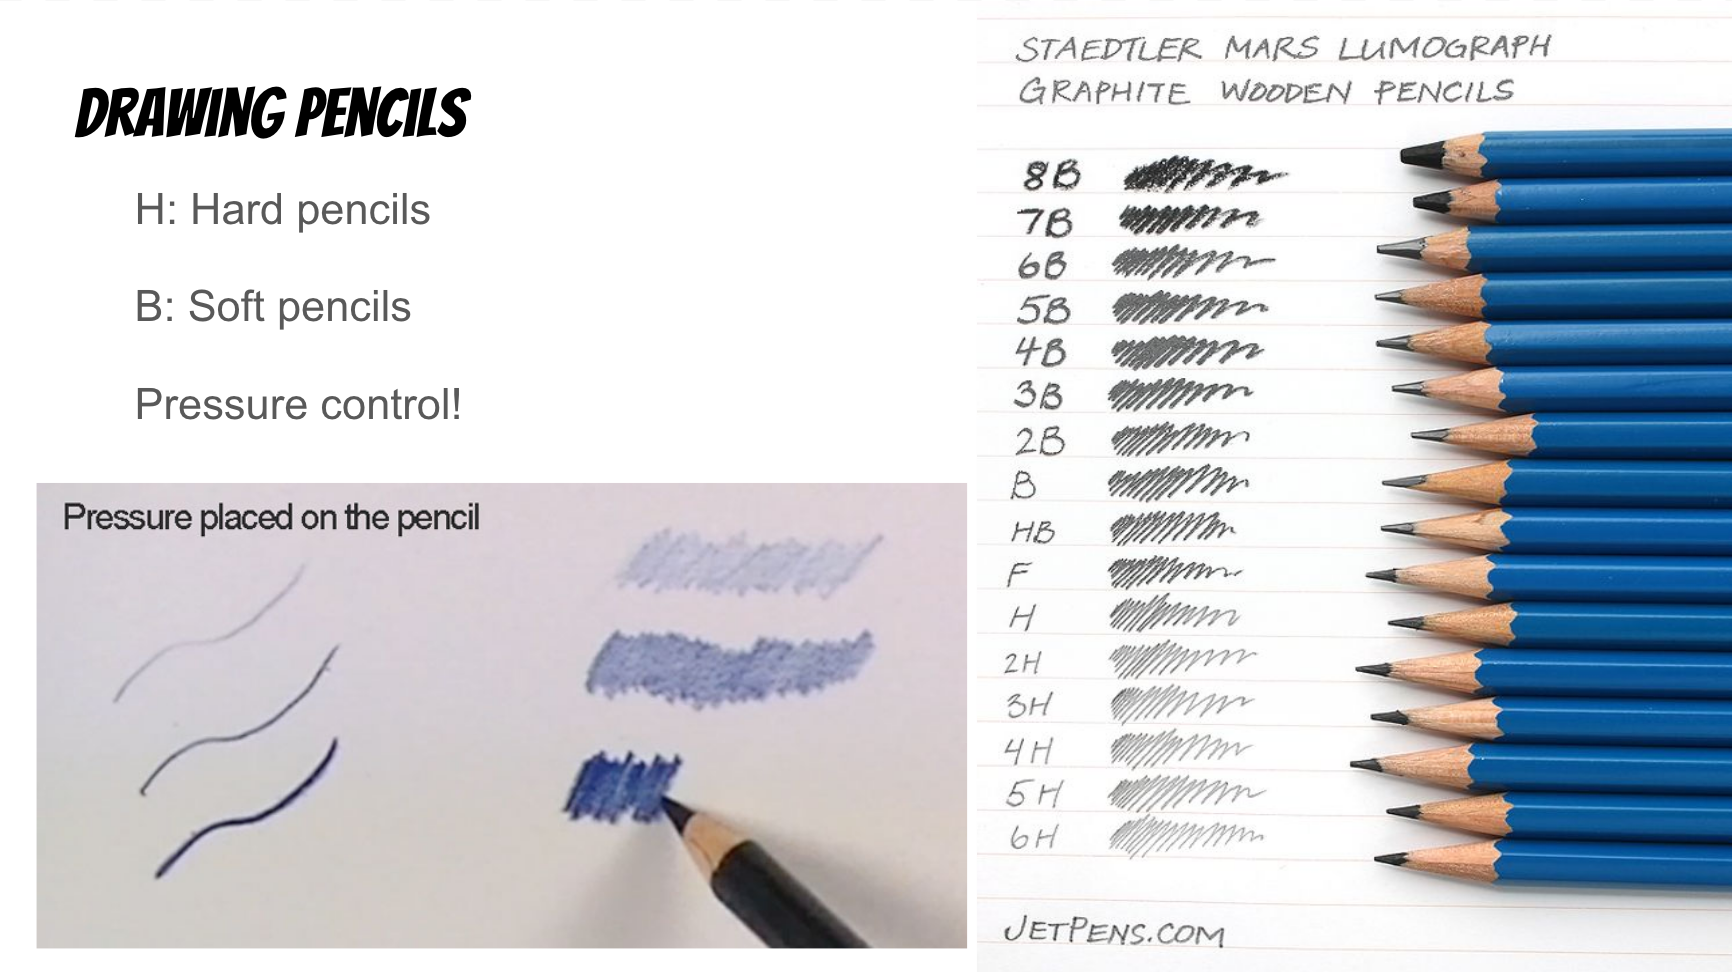 DRAWING PENCILS
H: Hard pencils
B: Soft pencils
Pressure control!
Pressure placed on the pencil
STAEDTLER MARS LUMOGRAPH
GRAPHITE WOODEN PENCILS
8B
7B
6B
5B
4B
3B
2B
B
HB
F
H
2H
3H
4H
5H
6H
JETPENS.COM